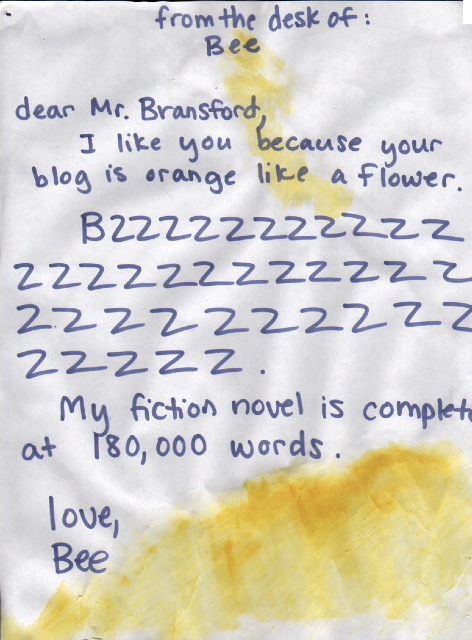 from the desk of:
Bee
dear Mr. Bransford,
I like you because your
blog is orange like a flower.
Bzzzzzzzzzzz
zzzzzzzzzzzz
zzzzzzzzzz
zzzzz.
My fiction novel is complete
at 180,000 words.
love,
Bee